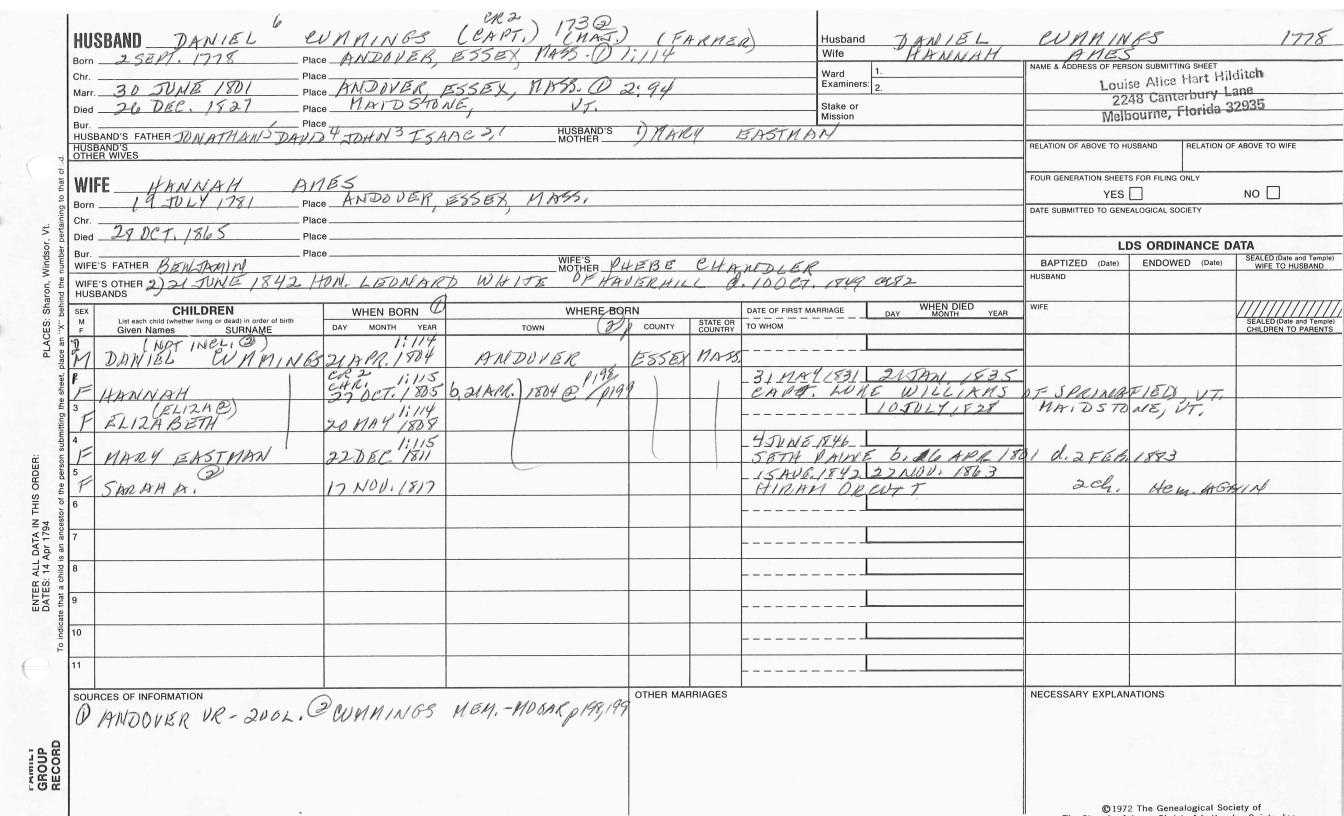 6 CR 2 173②
HUSBAND DANIEL CUMMINGS (CAPT.) (MAJ.) (FARMER)
Born 2 SEPT. 1778 Place ANDOVER, ESSEX, MASS. ① 1:114
Chr. Place
Marr. 30 JUNE 1801 Place ANDOVER, ESSEX, MASS. ① 2:94
Died 26 DEC. 1827 Place MAIDSTONE, VT.
Bur. Place
HUSBAND'S FATHER JONATHAN5 DAVID4 JOHN3 ISAAC2,1 HUSBAND'S MOTHER 1) MARY EASTMAN
HUSBAND'S OTHER WIVES
Husband DANIEL CUMMINGS 1778
Wife HANNAH AMES
Ward Examiners: 1.
2.
Stake or Mission
NAME & ADDRESS OF PERSON SUBMITTING SHEET
Louise Alice Hart Hilditch
2248 Canterbury Lane
Melbourne, Florida 32935
RELATION OF ABOVE TO HUSBAND RELATION OF ABOVE TO WIFE
FOUR GENERATION SHEETS FOR FILING ONLY
YES NO
DATE SUBMITTED TO GENEALOGICAL SOCIETY
WIFE HANNAH AMES
Born 19 JULY 1781 Place ANDOVER, ESSEX, MASS.
Chr. Place
Died 28 OCT. 1865 Place
Bur. Place
WIFE'S FATHER BENJAMIN WIFE'S MOTHER PHEBE CHANDLER
WIFE'S OTHER HUSBANDS 2) 21 JUNE 1842 HON. LEONARD WHITE OF HAVERHILL d. 10 OCT. 1849
LDS ORDINANCE DATA
BAPTIZED (Date) ENDOWED (Date) SEALED (Date and Temple) WIFE TO HUSBAND
HUSBAND
WIFE
SEALED (Date and Temple) CHILDREN TO PARENTS
SEX M F CHILDREN WHEN BORN ① WHERE BORN DATE OF FIRST MARRIAGE WHEN DIED
List each child (whether living or dead) in order of birth
Given Names SURNAME DAY MONTH YEAR TOWN COUNTY STATE OR COUNTRY TO WHOM DAY MONTH YEAR
1 (NOT INCL. ②) 1:114
M DANIEL CUMMINGS 21 APR. 1804 ANDOVER ESSEX MASS.
CR 2 p198
CHR. 1:115 31 MAY 1831 21 JAN. 1835
F HANNAH 27 OCT. 1805 b. 21 APR. 1804 @ p199 CAPT. LUKE WILLIAMS OF SPRINGFIELD, VT.
3 (ELIZA②) 1:114 10 JULY 1828 MAIDSTONE, VT.
F ELIZABETH 20 MAY 1808
4 1:115 4 JUNE 1846
F MARY EASTMAN 22 DEC. 1811 SETH PAINE b. 26 APR. 1801 d. 2 FEB. 1883
5 ② 15 AUG. 1842 22 NOV. 1863
F SARAH A. 17 NOV. 1817 HIRAM ORCUTT 2 ch. He m. AGAIN
6
7
8
9
10
11
SOURCES OF INFORMATION
① ANDOVER VR - 2 VOL. ② CUMMINGS MEM. - MOOAR p198,199
OTHER MARRIAGES
NECESSARY EXPLANATIONS
©1972 The Genealogical Society of
PLACES: Sharon, Windsor, Vt.
ENTER ALL DATA IN THIS ORDER:
DATES: 14 Apr 1794
To indicate that a child is an ancestor of the person submitting the sheet, place an "X" behind the number pertaining to that
GROUP
RECORD